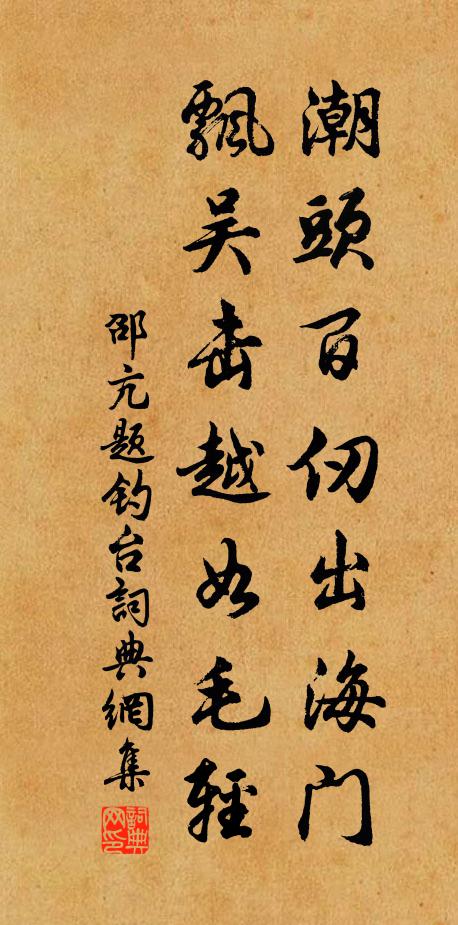 潮頭百仞出海门
飄吴击越如毛輕
邵亢题钓台詞典網集
詞典网印